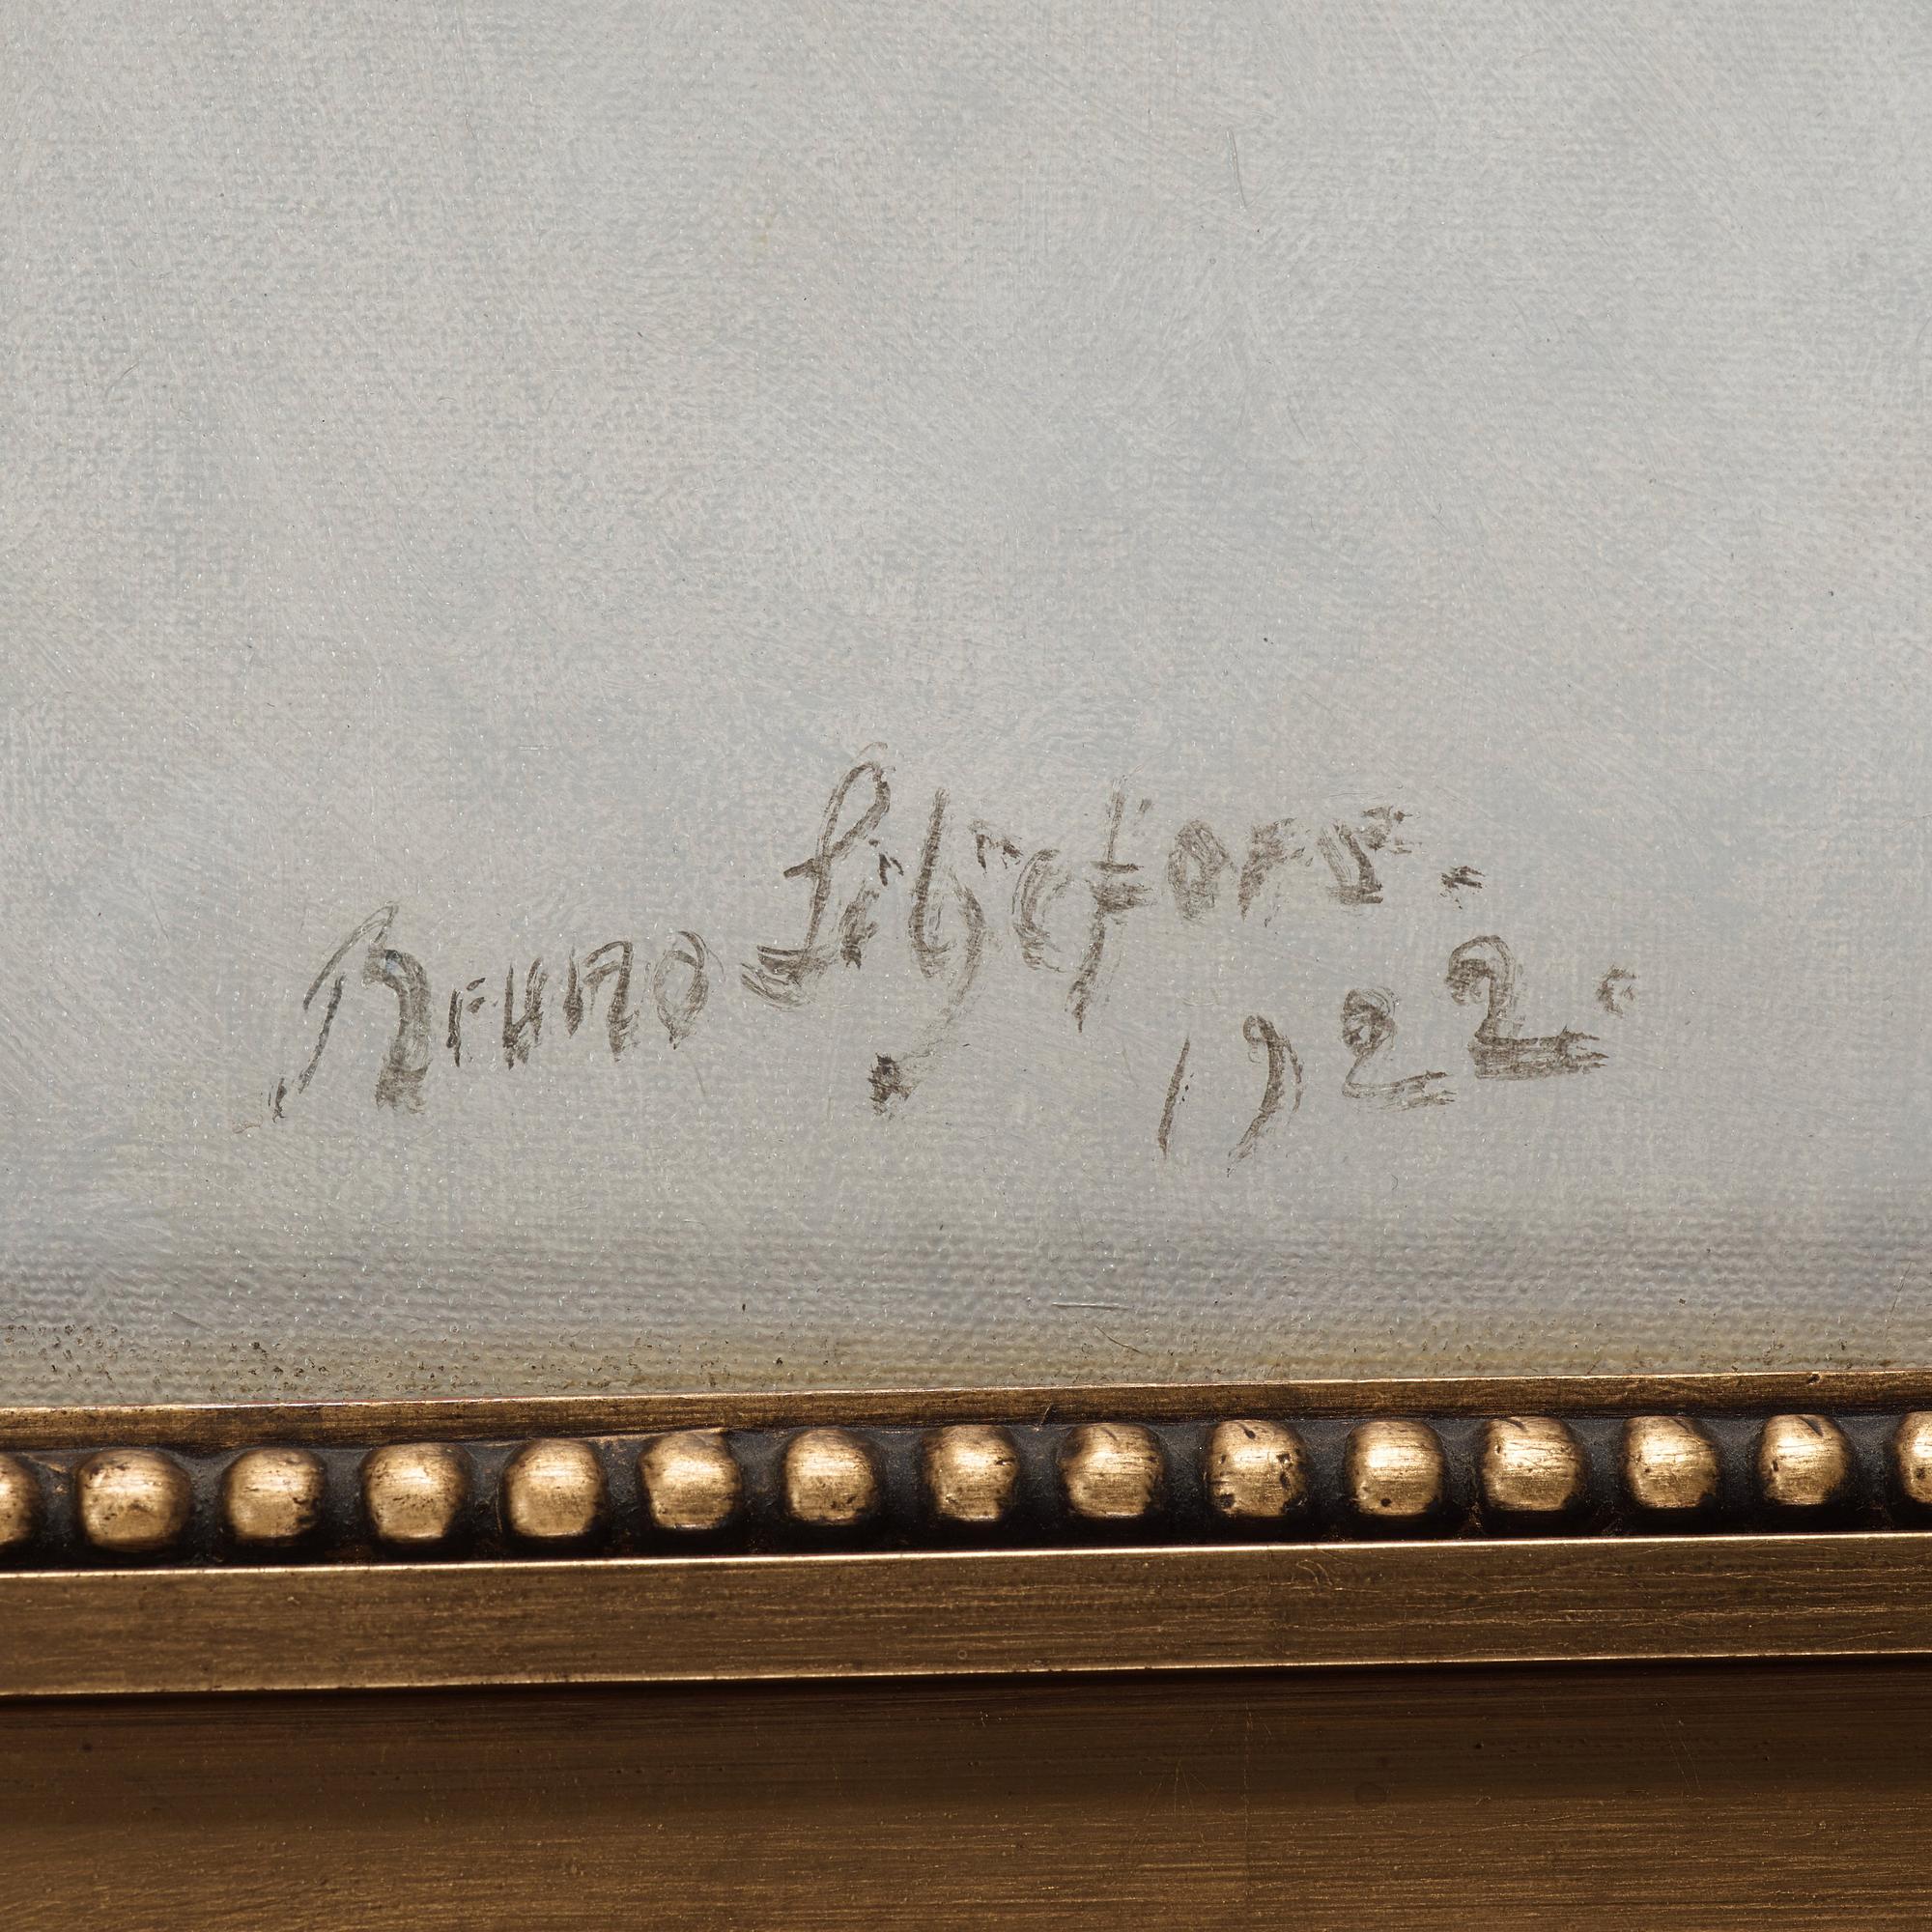 Bruno Liljefors.
1922.